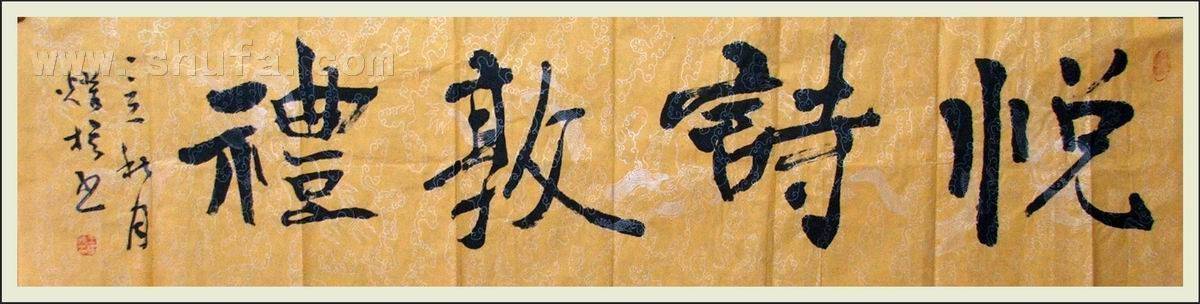 悦詩敦禮
秋月
書
www.shufa.com